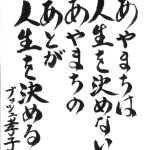 あやまちは
人生を決めない
あやまちの
あとが
人生を決める
ブッシュ孝子